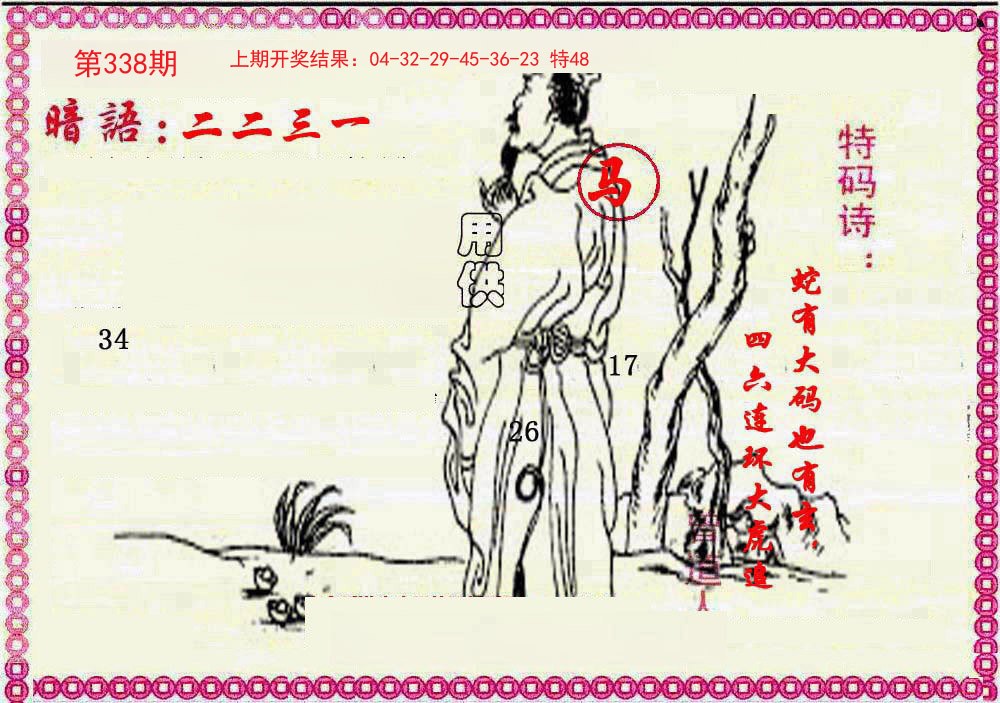 第338期
上期开奖结果：04-32-29-45-36-23 特48
暗語：二二三一
马
34
17
26
特码诗：
蛇有大码也有玄.
四六连环大虎追